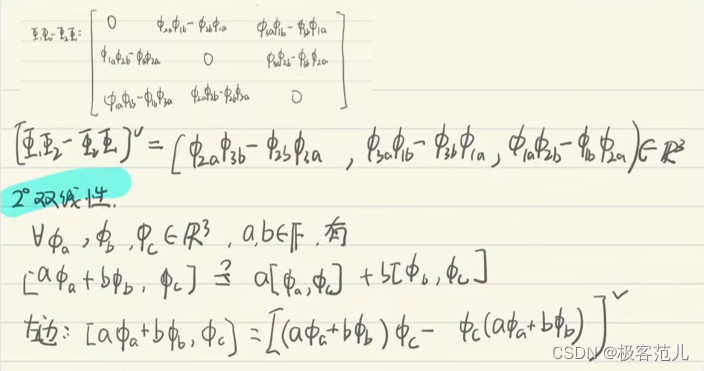 Φ₁Φ₂-Φ₂Φ₁= [ 0 ϕ₂ₐϕ₁b-ϕ₂bϕ₁ₐ ϕ₃ₐϕ₁b-ϕ₃bϕ₁ₐ
ϕ₁ₐϕ₂b-ϕ₁bϕ₂ₐ 0 ϕ₃ₐϕ₂b-ϕ₃bϕ₂ₐ
ϕ₁ₐϕ₃b-ϕ₁bϕ₃ₐ ϕ₂ₐϕ₃b-ϕ₂bϕ₃ₐ 0 ]
[Φ₁Φ₂-Φ₂Φ₁]^∨ = [ϕ₂ₐϕ₃b-ϕ₂bϕ₃ₐ , ϕ₃ₐϕ₁b-ϕ₃bϕ₁ₐ, ϕ₁ₐϕ₂b-ϕ₁bϕ₂ₐ) ∈ ℝ³
2° 双线性.
∀ϕₐ, ϕb, ϕc∈ℝ³, a,b∈𝔽, 有
[aϕₐ+bϕb, ϕc] ≟ a[ϕₐ,ϕc] + b[ϕb,ϕc]
左边: [aϕₐ+bϕb, ϕc] = [(aϕₐ+bϕb)ϕc - ϕc(aϕₐ+bϕb)]^∨
CSDN @极客范儿